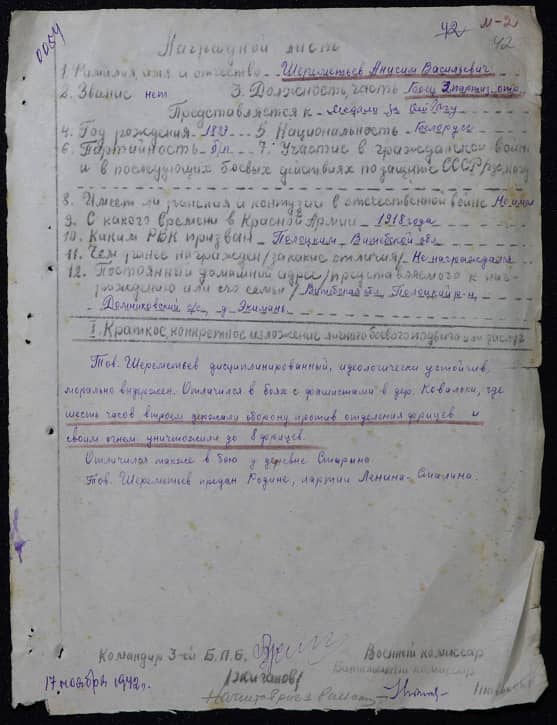 0054
42 М-2
42
Наградной лист
1. Фамилия, имя и отчество Шереметьев Анисим Васильевич
2. Звание нет 3. Должность, часть Боец партиз. отр.
Представляется к медали за отвагу
4. Год рождения 5. Национальность Белорус
6. Партийность б/п 7. Участие в гражданской войне
и в последующих боевых действиях по защите СССР
8. Имеет ли ранения и контузии в отечественной войне
9. С какого времени в Красной Армии 1918 года
10. Каким РВК призван Полоцким Витебской обл
11. Чем ранее награжден /за какие отличия/ Не награждался
12. Постоянный домашний адрес /представляемого к наг-
раждению или его семьи/ Витебская обл Полоцкий р-н,
с/с, д. Экимань
I. Краткое, конкретное изложение личного боевого подвига или заслуг
Тов. Шереметьев дисциплинированный, идеологически устойчив,
морально выдержен. Отличился в боях с фашистами в дер. Ковалевка, где
шесть часов втроем держали оборону против отделения фрицев и
своим огнем уничтожили до 8 фрицев.
Отличился также в бою у деревне
Тов. Шереметьев предан Родине, партии Ленина-Сталина.
Командир 3-ей Б.П.Б. Военный комиссар
17 ноября 1942г.